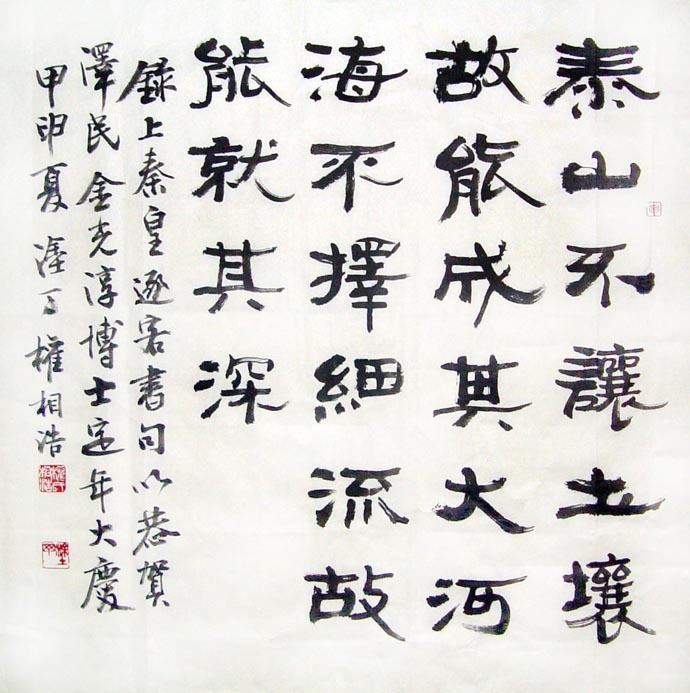 泰山不讓土壤
故能成其大河
海不擇細流故
能就其深
錄上秦皇逐客書句以恭賀
澤民金光淳博士定年大慶
甲申夏 丁權相浩